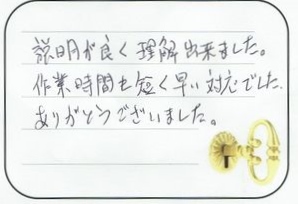 説明が良く理解出来ました。
作業時間も短く早い対応でした。
ありがとうございました。